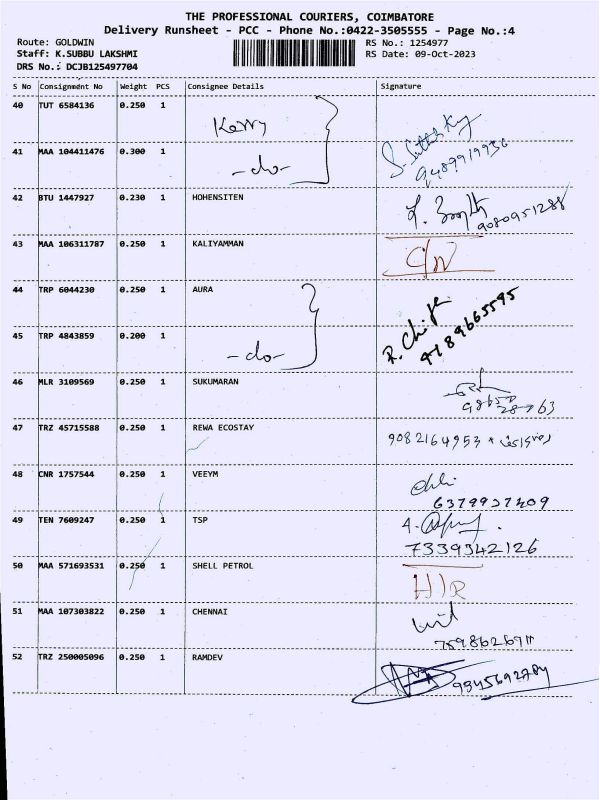 THE PROFESSIONAL COURIERS, COIMBATORE
Delivery Runsheet - PCC - Phone No.:0422-3505555 - Page No.:4
Route: GOLDWIN RS No.: 1254977
Staff: K.SUBBU LAKSHMI RS Date: 09-Oct-2023
DRS No.: DCJB125497704
S No Consignment No Weight PCS Consignee Details Signature
40 TUT 6584136 0.250 1 Kerry
41 MAA 104411476 0.300 1 -do- 9489919936
42 BTU 1447927 0.230 1 HOHENSITEN 9080951288
43 MAA 106311787 0.250 1 KALIYAMMAN
44 TRP 6044230 0.250 1 AURA
45 TRP 4843859 0.200 1 -do- 9789665595
46 MLR 3109569 0.250 1 SUKUMARAN
47 TRZ 45715588 0.250 1 REWA ECOSTAY 9082164953
48 CNR 1757544 0.250 1 VEEYM
6379937409
49 TEN 7609247 0.250 1 TSP
7339342126
50 MAA 571693531 0.250 1 SHELL PETROL
51 MAA 107303822 0.250 1 CHENNAI
52 TRZ 250005096 0.250 1 RAMDEV 9345692784